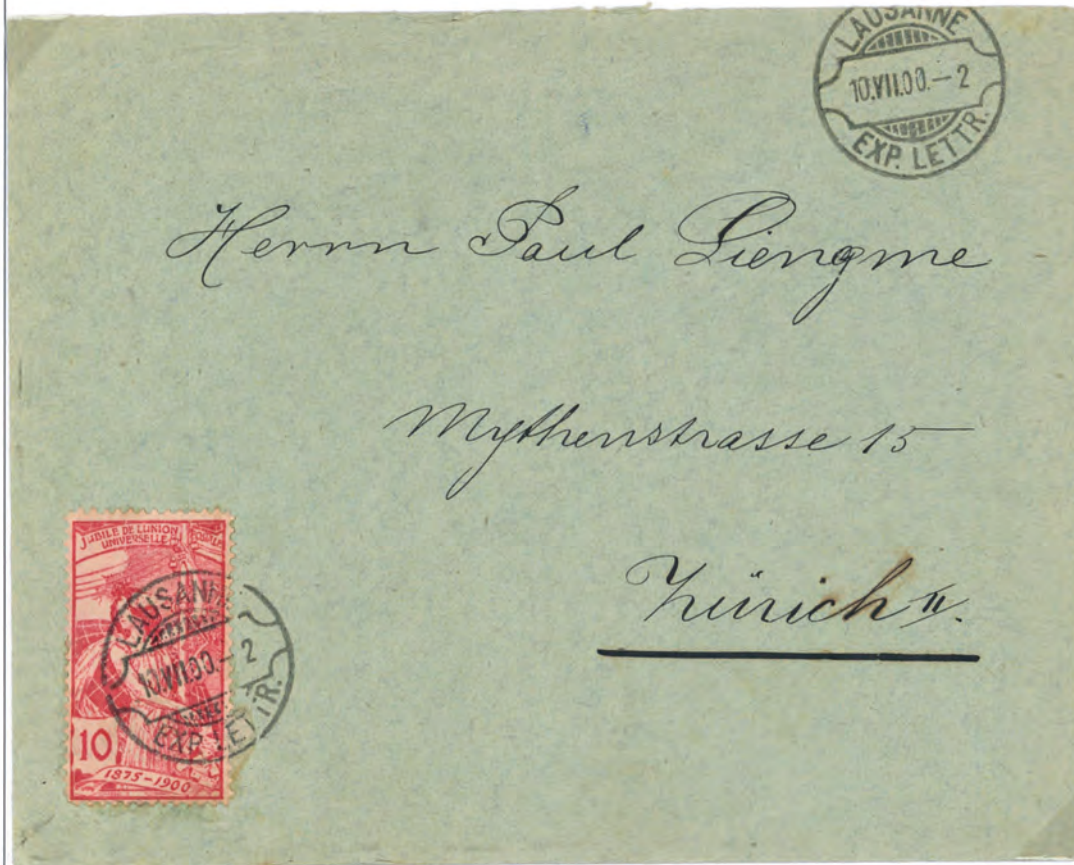 LAUSANNE
10.VII.00.-2
EXP. LETTR.
Herrn Paul Liengme
Mythenstrasse 15
Zürich II.
JUBILÉ DE L'UNION
UNIVERSELLE
LAUSANNE
10.VII.00-2
EXP. LETTR.
10
1875-1900